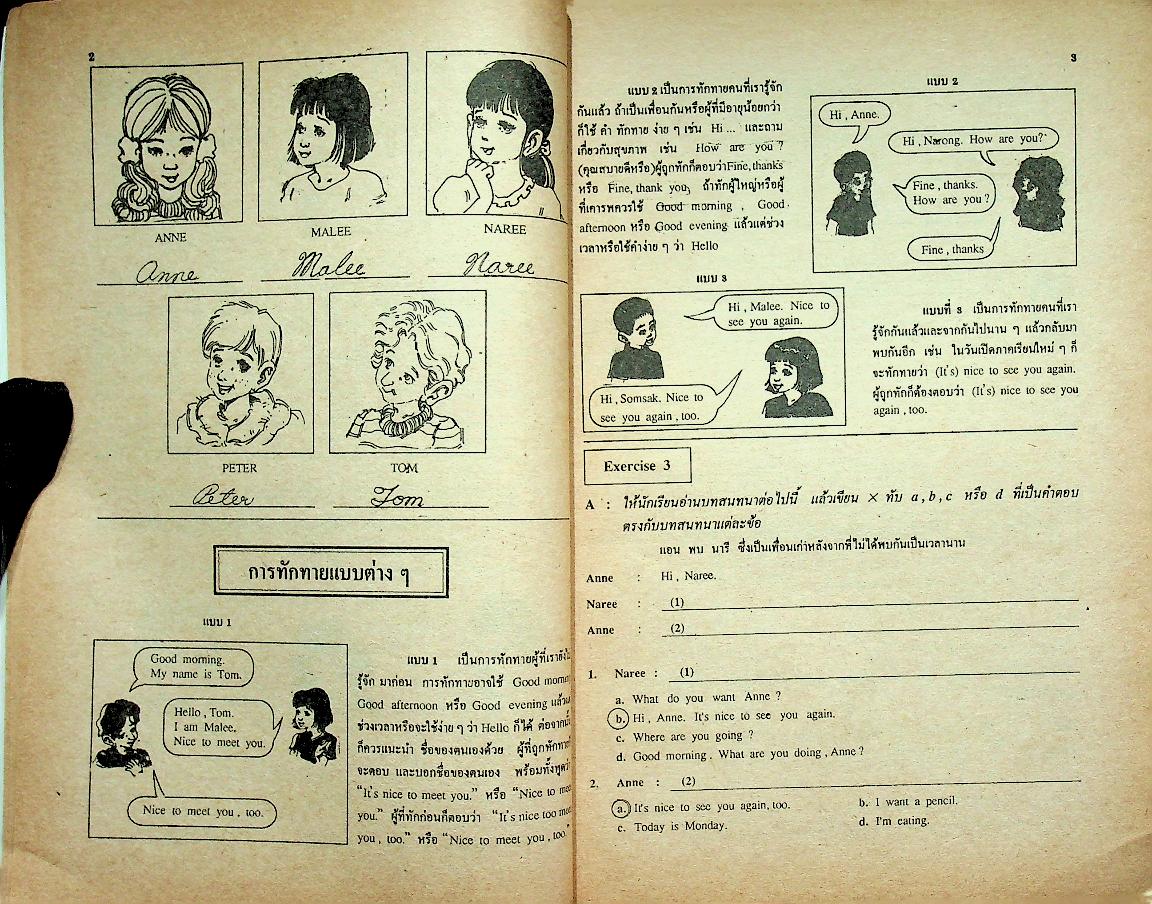 2
ANNE
MALEE
NAREE
Anne
Malee
Naree
PETER
TOM
Peter
Tom
การทักทายแบบต่าง ๆ
แบบ 1
Good morning.
My name is Tom.
Hello, Tom.
I am Malee.
Nice to meet you.
Nice to meet you, too.
แบบ 1 เป็นการทักทายผู้ที่เรายังไม่
รู้จัก มาก่อน การทักทายอาจใช้ Good
Good afternoon หรือ Good evening
ช่วงเวลาหรือจะใช้ง่าย ๆ ว่า Hello ก็ได้ ต่อจากนั้น
ก็ควรแนะนำ ชื่อของตนเองด้วย ผู้ที่ถูกทักทาย
จะตอบ และบอกชื่อของตนเอง พร้อมทั้งพูดว่า
"It's nice to meet you." หรือ "Nice to meet
you." ผู้ที่ทักก่อนก็ตอบว่า "It's nice too
you, too." หรือ "Nice to meet you, too."
3
แบบ 2 เป็นการทักทายคนที่เรารู้จัก
กันแล้ว ถ้าเป็นเพื่อนกันหรือผู้ที่มีอายุน้อยกว่า
ก็ใช้ คำ ทักทาย ง่าย ๆ เช่น Hi ... และถาม
เกี่ยวกับสุขภาพ เช่น How are you ?
(คุณสบายดีหรือ)ผู้ถูกทักก็ตอบว่าFine, thanks
หรือ Fine, thank you, ถ้าทักผู้ใหญ่หรือผู้
ที่เคารพควรใช้ Good morning , Good
afternoon หรือ Good evening แล้วแต่ช่วง
เวลาหรือใช้คำง่าย ๆ ว่า Hello
แบบ 2
Hi , Anne.
Hi , Narong. How are you?
Fine , thanks.
How are you ?
Fine , thanks
แบบ 3
Hi , Malee. Nice to
see you again.
Hi , Somsak. Nice to
see you again , too.
แบบที่ 3 เป็นการทักทายคนที่เรา
รู้จักกันแล้วและจากกันไปนาน ๆ แล้วกลับมา
พบกันอีก เช่น ในวันเปิดภาคเรียนใหม่ ๆ ก็
จะทักทายว่า (It's) nice to see you again.
ผู้ถูกทักก็ต้องตอบว่า (It's) nice to see you
again , too.
Exercise 3
A : ให้นักเรียนอ่านบทสนทนาต่อไปนี้ แล้วเขียน × ทับ a, b, c หรือ d ที่เป็นคำตอบ
ตรงกับบทสนทนาแต่ละข้อ
แอน พบ นารี ซึ่งเป็นเพื่อนเก่าหลังจากที่ไม่ได้พบกันเป็นเวลานาน
Anne : Hi , Naree.
Naree : (1)
Anne : (2)
1. Naree : (1)
a. What do you want Anne ?
b. Hi , Anne. It's nice to see you again.
c. Where are you going ?
d. Good morning. What are you doing, Anne ?
2. Anne : (2)
a. It's nice to see you again, too. b. I want a pencil.
c. Today is Monday. d. I'm eating.